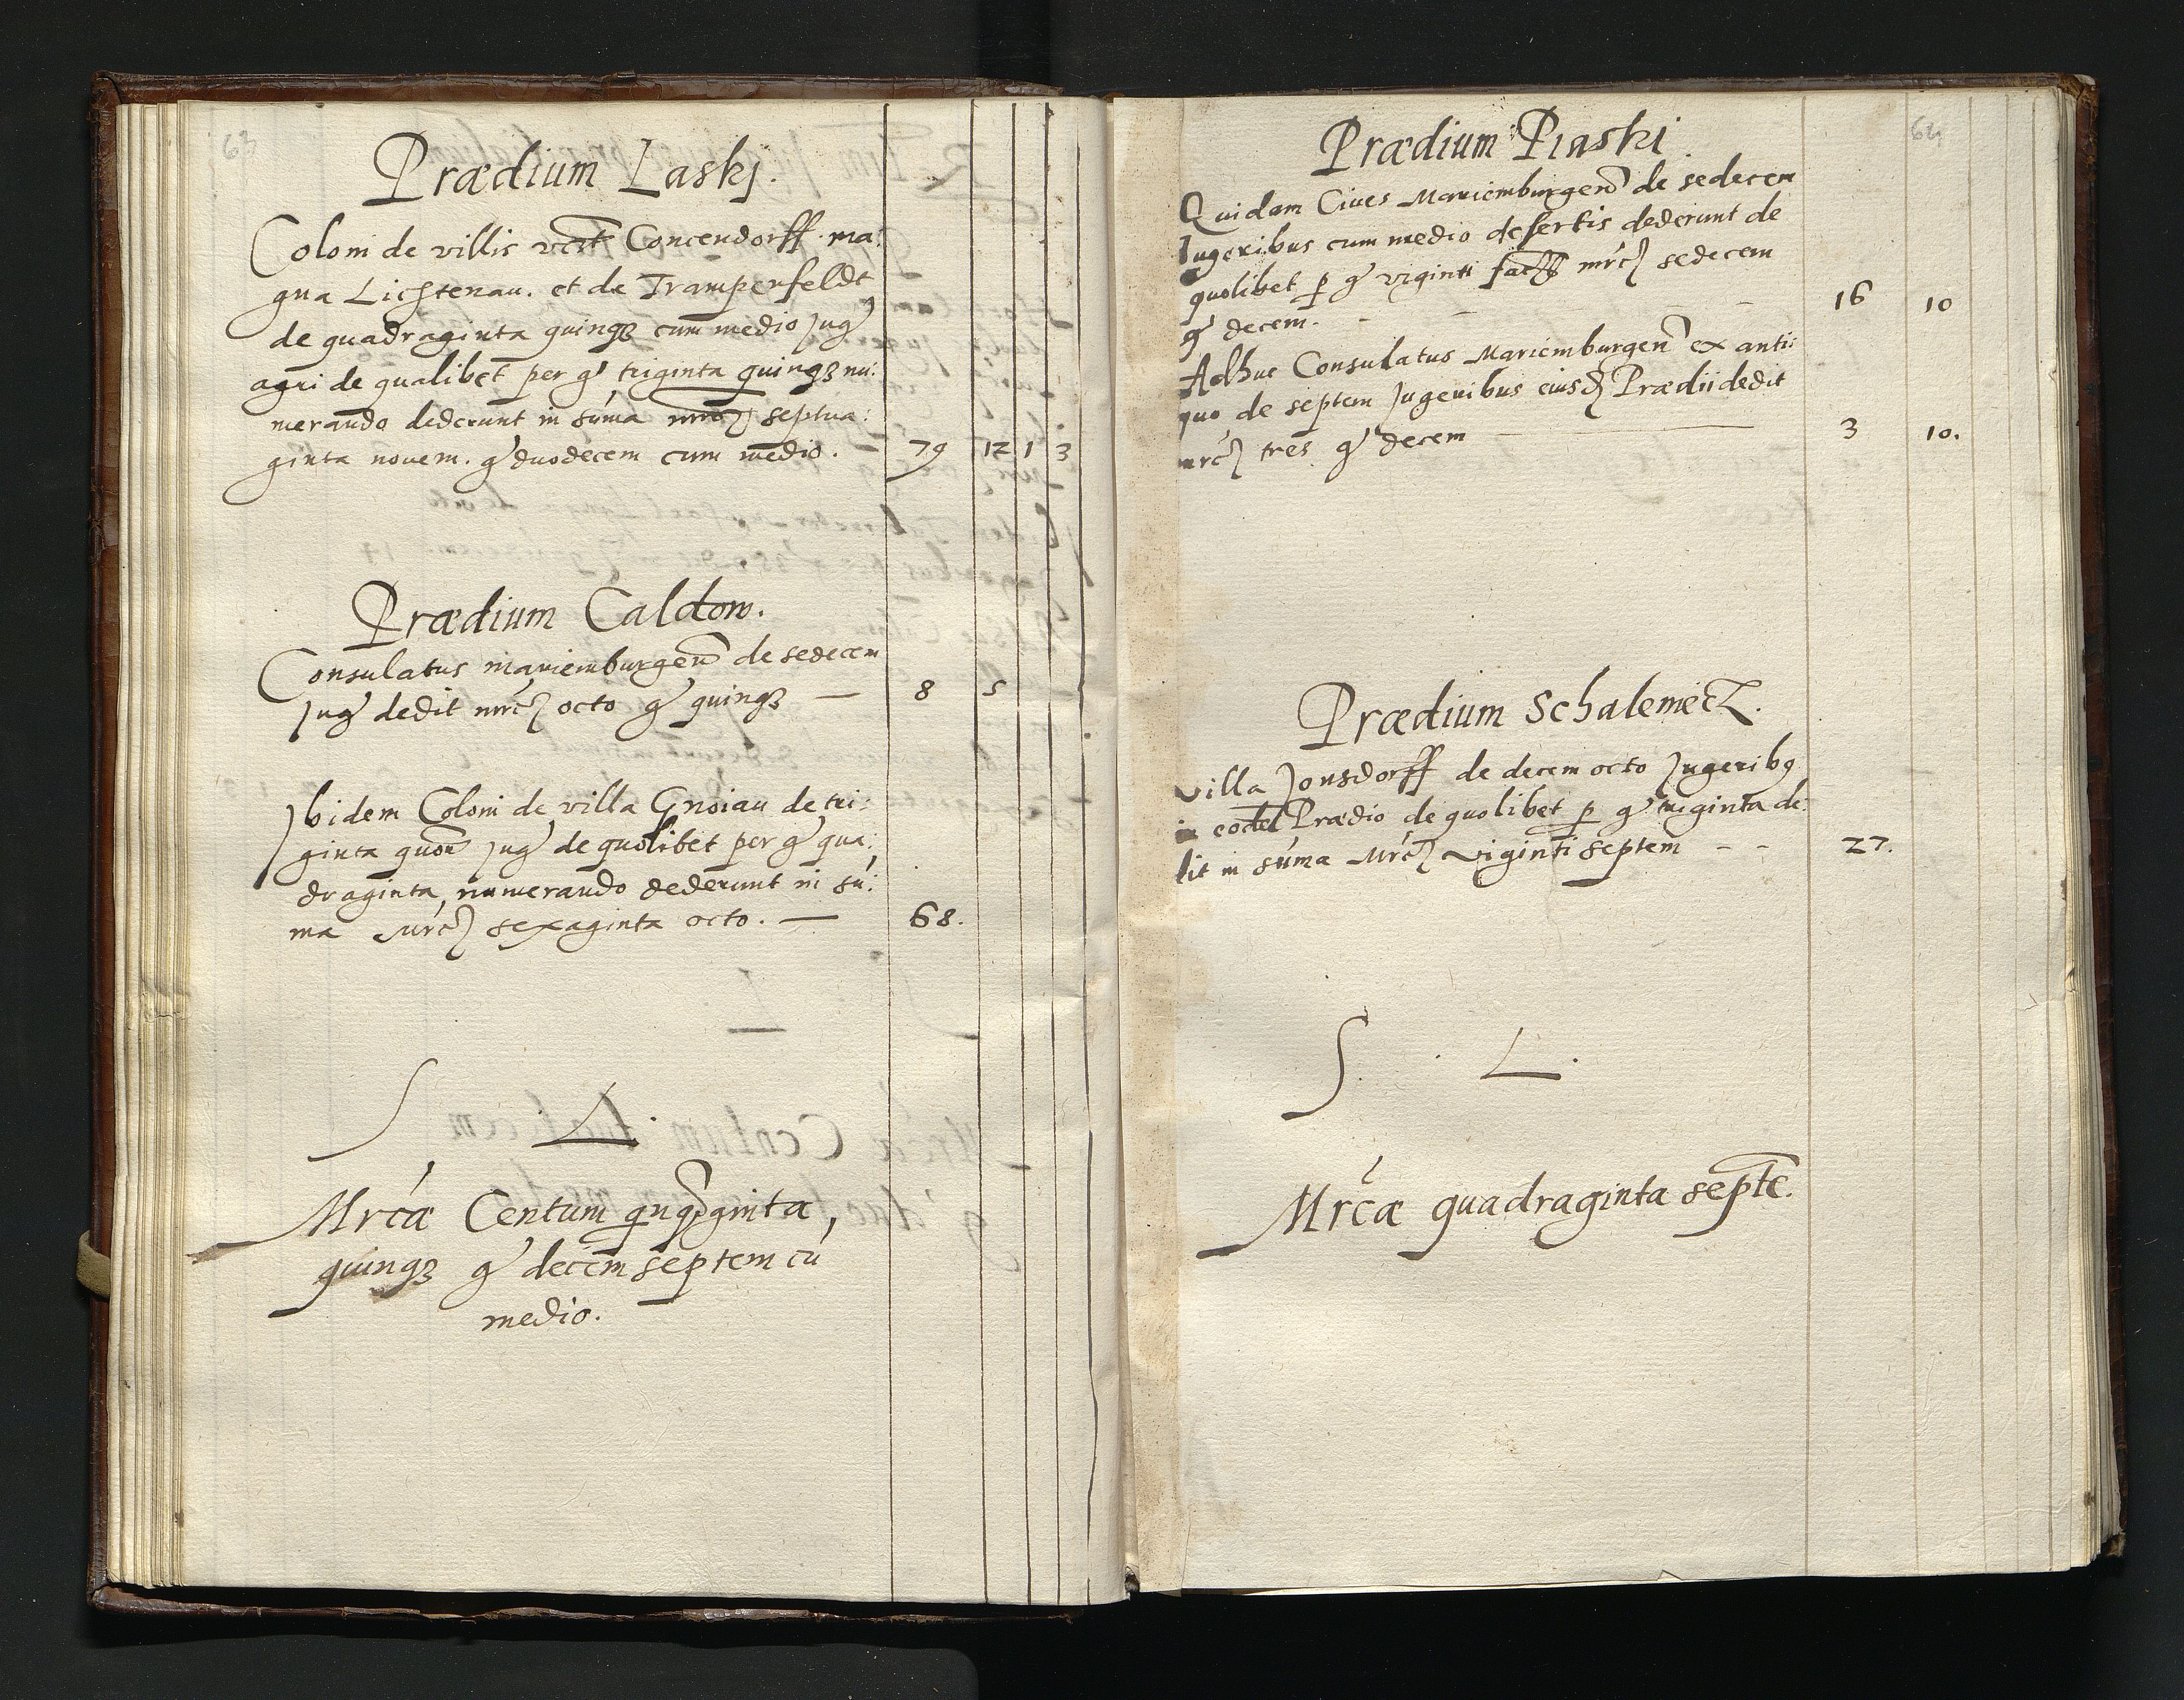 63
Prædium Laskj.
Coloni de villis Concendorff ma:
gna Lichtenau. et de Tramperfeldt
de quadraginta quinqȝ cum medio jug
agri de qualibet per gͬ triginta quinqȝ nu:
merando dederunt in sūma mrcͣ septua:
ginta novem. gͬ duodecem cum medio. 79 12 1 3
Prædium Caldow.
Consulatus mariemburgen̄ de sedecem
Jug dedit mrcͣ octo gͬ quinqȝ — 8 5
Jbidem Coloni de villa Gnoiau de tri:
ginta quor jug de quolibet per gͬ qua:
draginta, numerando dederunt in sū:
ma Mrcͣ sexaginta octo. — 68.
S L.
Mrcæ Centum quīqginta,
quinqȝ gͬ decem septem cū
medio.
64
Prædium Piaski
Quidam Ciues Mariemburgen̄ de sedecem
Jugeribus cum medio desertis dederunt de
quolibet p gͬ viginti mrcͣ sedecem
gͬ decem. — — — 16 10
Adhuc Consulatus Mariemburgen̄ ex anti:
quo de septem Jugeribus eiusd Prædii dedit
mrcͣ tres gͬ decem — 3 10.
Prædium Schalemecz.
Villa Jonsdorff de decem octo Jugeribꝰ
in eodem Prædio de quolibet p gͬ triginta de:
dit in sūma Mrcͣ viginti septem - - 27.
S. L.
Mrcæ quadraginta septē.